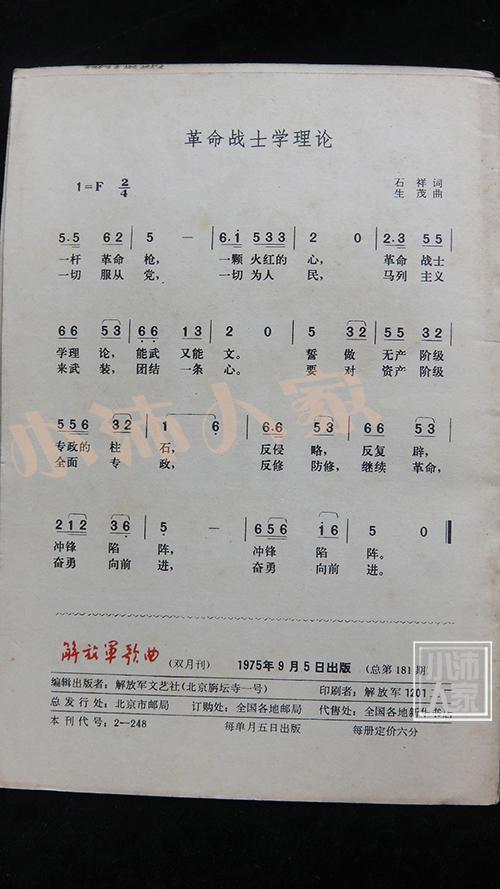 革命战士学理论
1=F 2/4
石祥 词
生茂 曲
5.5 6 2 | 5 — | 6.i 5 3 3 | 2 0 | 2.3 5 5 |
一杆 革命 枪， 一颗 火红的 心， 革命 战士
一切 服从 党， 一切 为人 民， 马列 主义
6 6 5 3 | 6 6 1 3 | 2 0 | 5 3 2 | 5 5 3 2 |
学理 论， 能武 又能 文。 誓 做 无产 阶级
来武 装， 团结 一条 心。 要 对 资产 阶级
5 5 6 3 2 | 1 6 | 6.6 5 3 | 6 6 5 3 |
专政的 柱 石， 反侵 略， 反复 辟，
全面 专 政， 反修 防修， 继续 革命，
2 1 2 3 6 | 5 — | 6 5 6 i 6 | 5 0 ‖
冲锋 陷 阵， 冲锋 陷 阵。
奋勇 向前 进， 奋勇 向前 进。
解放军歌曲 (双月刊) 1975年9月5日出版 (总第181期)
编辑出版者：解放军文艺社(北京旃坛寺一号) 印刷者：解放军1201工
总发行处：北京市邮局 订购处：全国各地邮局 代售处：全国各地新华书店
本刊代号：2—248 每单月五日出版 每册定价六分
小沛人家
小沛人家